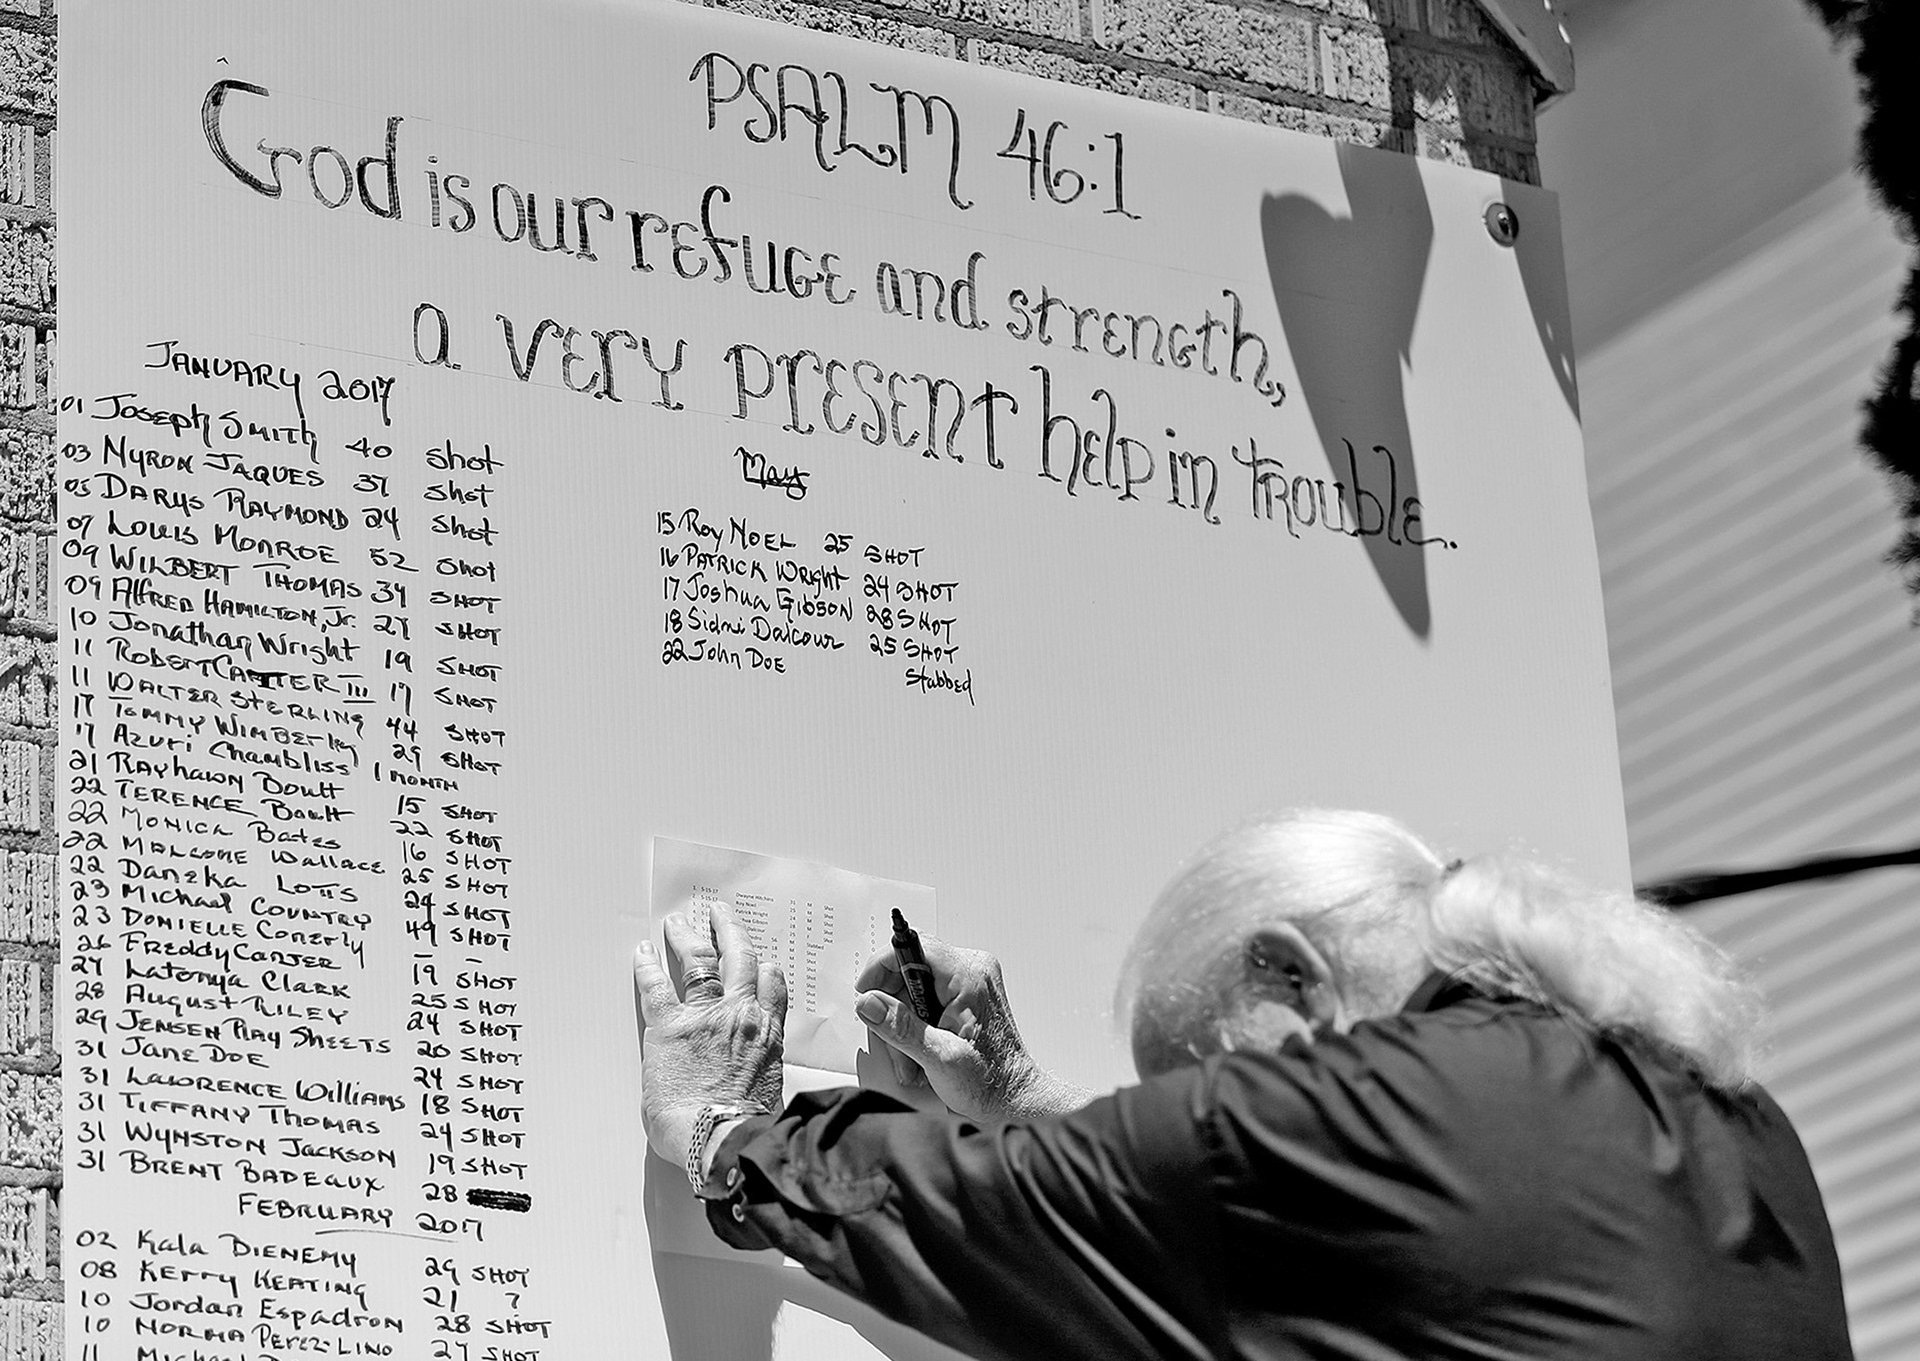 PSALM 46:1
God is our refuge and strength,
a very present help in trouble.
JANUARY 2017
01 Joseph Smith 40 shot
03 Myron Jaques 37 shot
05 Darys Raymond 24 shot
07 Louis Monroe 52 shot
09 Wilbert Thomas 39 SHOT
09 Alfred Hamilton, Jr. 27 SHOT
10 Jonathan Wright 19 SHOT
11 Robert Carter III 17 SHOT
11 Walter Sterling 44 SHOT
17 Tommy Wimberly 29 SHOT
17 Azuri Chambliss 1 MONTH
21 Rayhawn Boutt 15 SHOT
22 Terence Boutt 22 SHOT
22 Monica Bates 16 SHOT
22 Malcome Wallace 25 SHOT
22 Daneka Lotts 24 SHOT
23 Michael Country 49 SHOT
23 Donielle Conerly - -
26 Freddy Carter 19 SHOT
27 Latonya Clark 25 SHOT
28 August Riley 24 SHOT
29 Jensen Ray Sheets 20 SHOT
31 Jane Doe 24 SHOT
31 Lawrence Williams 18 SHOT
31 Tiffany Thomas 24 SHOT
31 Wynston Jackson 19 SHOT
31 Brent Badeaux 28
FEBRUARY 2017
02 Kala Dienemy 29 SHOT
08 Kerry Keating 21 ?
10 Jordan Espadron 28 SHOT
10 Norma Perez-Lino 27 SHOT
11 Michael
May
15 Roy Noel 25 SHOT
16 Patrick Wright 24 SHOT
17 Joshua Gibson 28 SHOT
18 Sidni Dalcour 25 SHOT
22 John Doe Stabbed